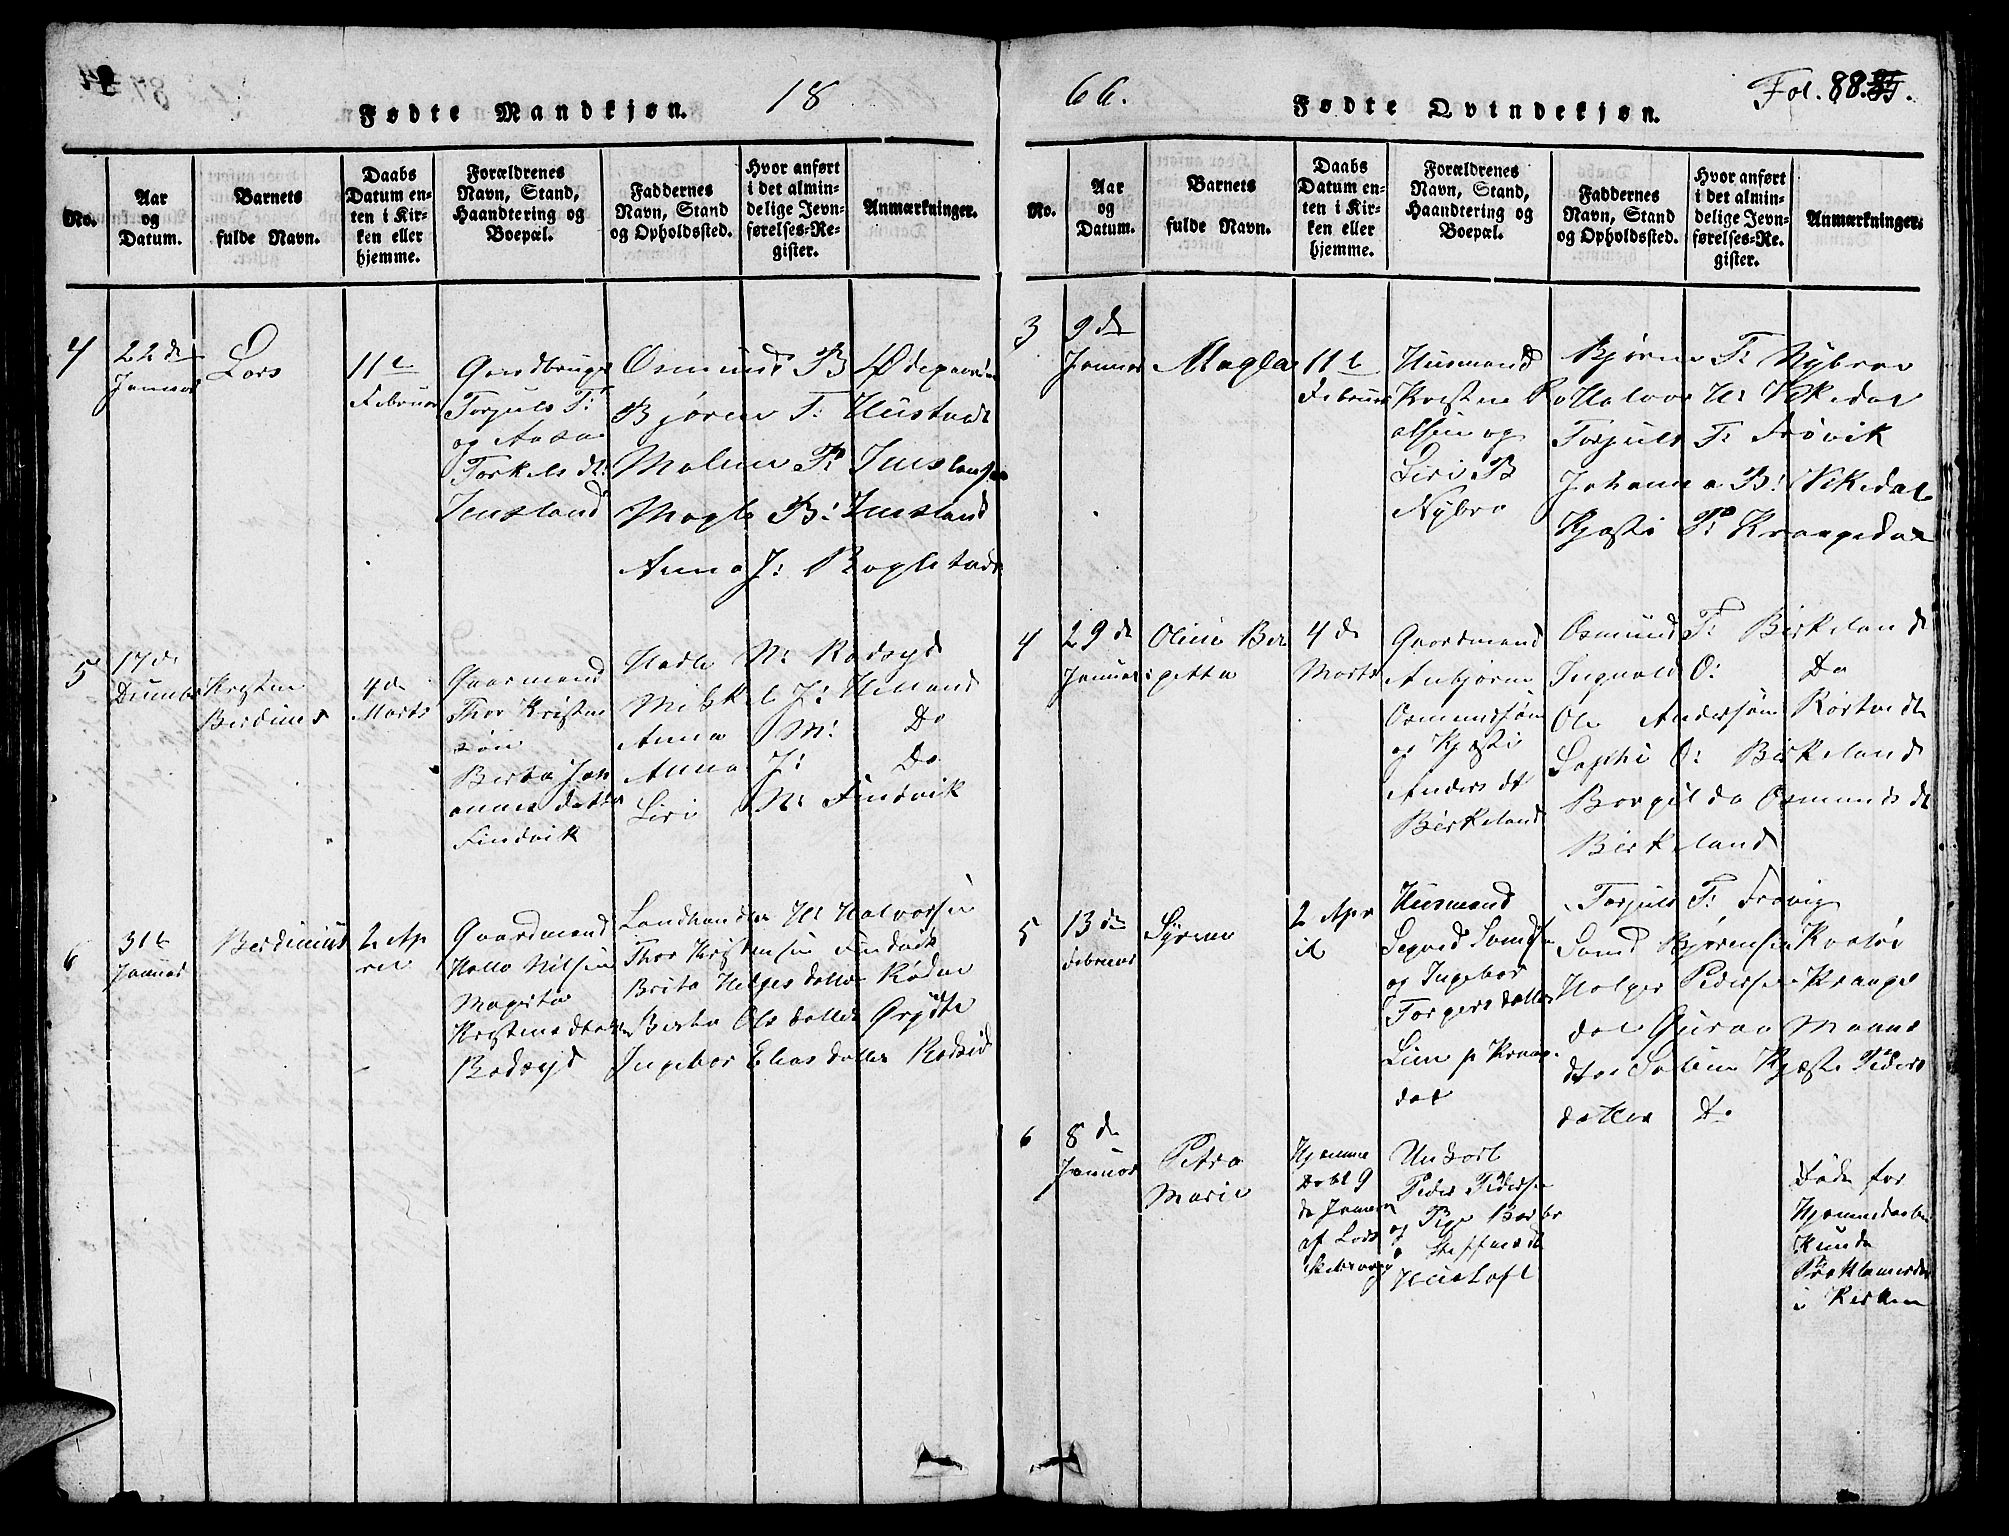 Fødte Mandkjøn. 18
No.
Aar og Datum.
Barnets fulde Navn.
Daabs Datum enten i Kirken eller hjemme.
Forældrenes Navn, Stand, Haandtering og Boepæl.
Faddernes Navn, Stand og Opholdssted.
Hvor anført i det almindelige Jevnførelses-Register.
Anmærkninger.
4
22 de
Januar
Lars
11te
Februar
Gardbruger
Torjuls T:
og Aasa
Torkels dt:
Jensland
Osmund B Ødegaarden
Bjøren T: Hustvedt
Malene T: Jenslansen
Magla B: Jensland
Anna J: Røglstad
5
17 de
Kristen
Berdines
4 de
Marts
Gaarmand
Thor Kristen
søn
Berta Joh
annes datter
Findvik
Hadle N: Rødsyd
Mikkel J: Helland
Anna M: Do
Anna J: Do
Siri N: Findvik
6
31te
Januar
Berdinius
2 Ap
ril
Gaardmand
Halle Nilsen
Magreta
Kristens datter
Rødsyd
Landhandler H: Halvorsen
Thor Kristensen Findvik
Brita Helges datter Rødne
Berta Ols datter Grydte
Ingebor Elias datter Rødsid
66. Fødte Qvindekjøn. Fol. 88.
No.
Aar og Datum.
Barnets fulde Navn.
Daabs Datum enten i Kirken eller hjemme.
Forældrenes Navn, Stand, Haandtering og Boepæl.
Faddernes Navn, Stand og Opholdssted.
Hvor anført i det almindelige Jevnførelses-Register.
Anmærkninger.
3
9 de
Januar
Magla
11te
Februar
Husmand
Kristen Ro
alsen og
Siri B
Nybro
Bjørn T: Nybroe
Halvor H: Vikedal
Torjuls T: Frøvik
Johanna B: Vikedal
Kjæsti P: Krangedal
4
29 de
Januar
Oline Ber
gitta
4 de
Marts
Gaardmand
Anbjørn
Osmundsøn
og Kjæsti
Anders dt
Birkeland
Osmund T: Birkeland
Ingvald O: Do
Ole Andersøn Rørtvedt
Sophi O: Birkeland
Borgilda Osmunds dt
Birkeland
5
13 de
Februar
Syrene
2 Apr
il
Husmand
Segved Samdsen
og Ingebor
Torgers datter
Lien p Krange
dal
Torjuls T: Frøvig
Samd Bjørensen
Holger Pedersen Krange
dal Guroe Monse
dter Kjæsti Peders
datter Do
6
8 de
Januar
Petra
Marie
Hjemme
Døbt 9
de Januar
af Lars
Ungkarl
Peder Pedersen
og Pige Barbr
Steffens dt
Husloft
Døde før
Hjemmedaaben
Kunde
Proklameres
i Kirken